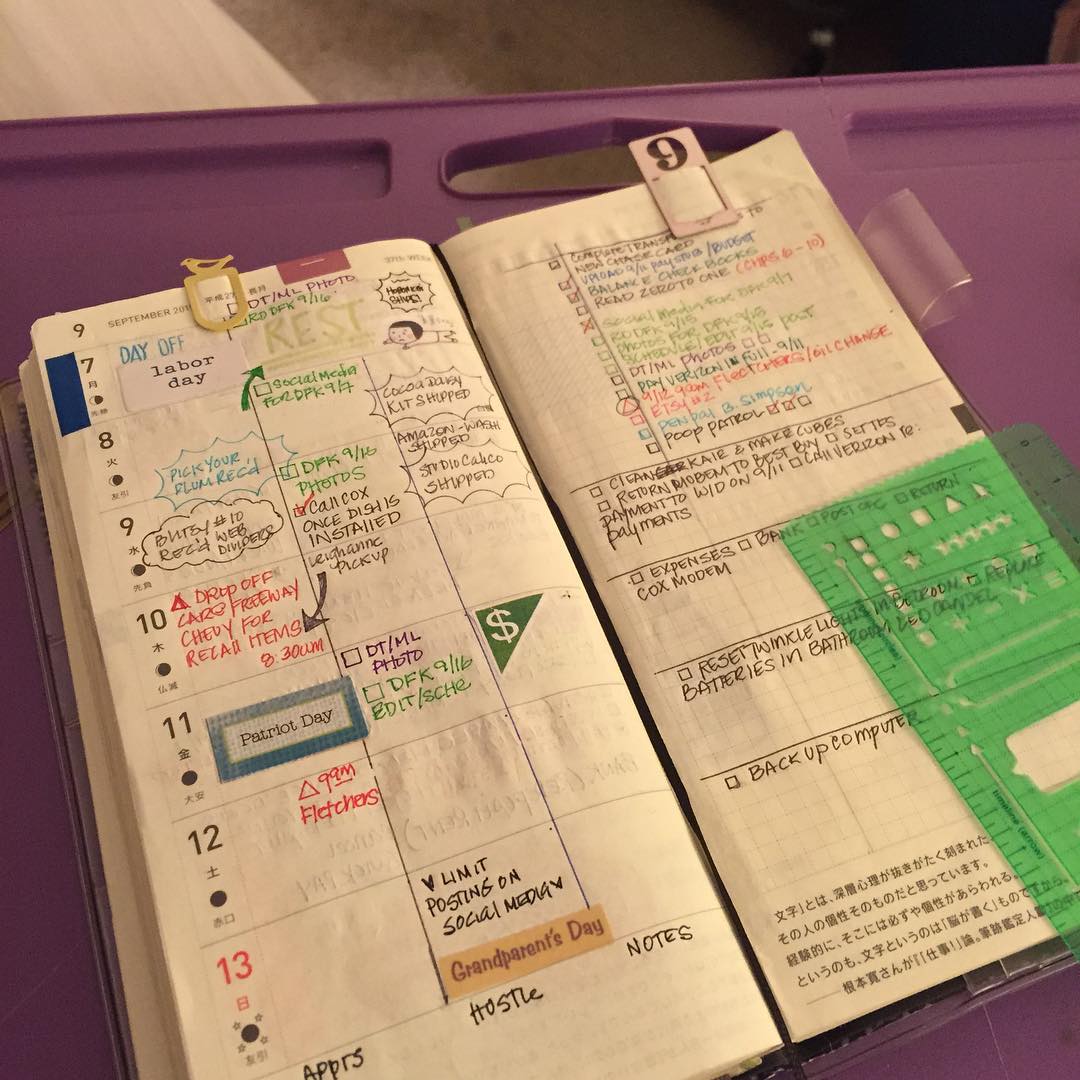 9
SEPTEMBER 201
平成27
長月
37th WEEK
DT/ML PHOTO
RD DFK 9/16
REST
7
月
先勝
DAY OFF
labor
day
Social Media
FOR DFK 9/7
COCOA DAISY
KIT SHIPPED
8
火
友引
PICK YOUR
PLUM REC'D
DFK 9/16
PHOTOS
AMAZON-WASH
SHIPPED
STUDIO CALICO
SHIPPED
9
水
先負
BUTSY #10
REC'D WEB
DIVIDERS
Call COX
ONCE DISH IS
INSTALLED
Leighanne
PICKUP
10
木
仏滅
DROP OFF
CAR@ FREEWAY
CHEVY FOR
RECALL ITEMS
8:30am
DT/ML
PHOTO
DFK 9/16
EDIT/SCHE
$
11
金
大安
Patriot Day
12
土
赤口
9am
Fletchers
LIMIT
POSTING ON
SOCIAL MEDIA
13
日
友引
Grandparent's Day
APPTS
HOSTLE
NOTES
9
Complete TRANSF
TO
NEW CHASE CARD
UPLOAD 9/11 PAY STUB/BUDGET
BALANCE CHECK BOOKS
READ ZERO TO ONE (CHPS 6-10)
Social Media FOR DFK 9/7
RD DFK 9/15
PHOTOS FOR DFK 9/15
SCHEDULE/EDIT 9/15 POST
DT/ML PHOTOS
PAY VERIZON IN FULL 9/11
9/12 9am FLETCHERS/OIL CHANGE
ETSY #2
PENPAL B. Simpson
POOP PATROL
CLEAN KAIR & MAKE CUBES
RETURN MODEM TO BEST BUY
SETTES
PAYMENT TO W/D ON 9/11
Call VERIZON re:
payments
EXPENSES
BANK
POST OFC
RETURN
COX MODEM
RESET TWINKLE LIGHTS IN BEDROOM
REPLACE
BATTERIES IN BATHROOM LED CANDEL
BACK UP COMPUTER
timeline (arrow)
文字」とは、深層心理が抜きがたく刻まれた
その人の個性そのものだと思っています。
経験的に、そこには必ずや個性があらわれる。
というのも、文字というのは「脳が書く」もので
根本寛さんが『「仕事!」論。筆跡鑑定人